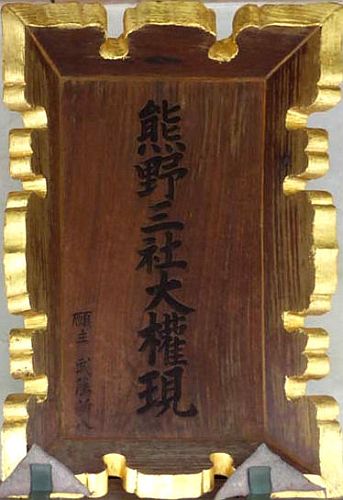 熊野三社大權現
願主 武藤